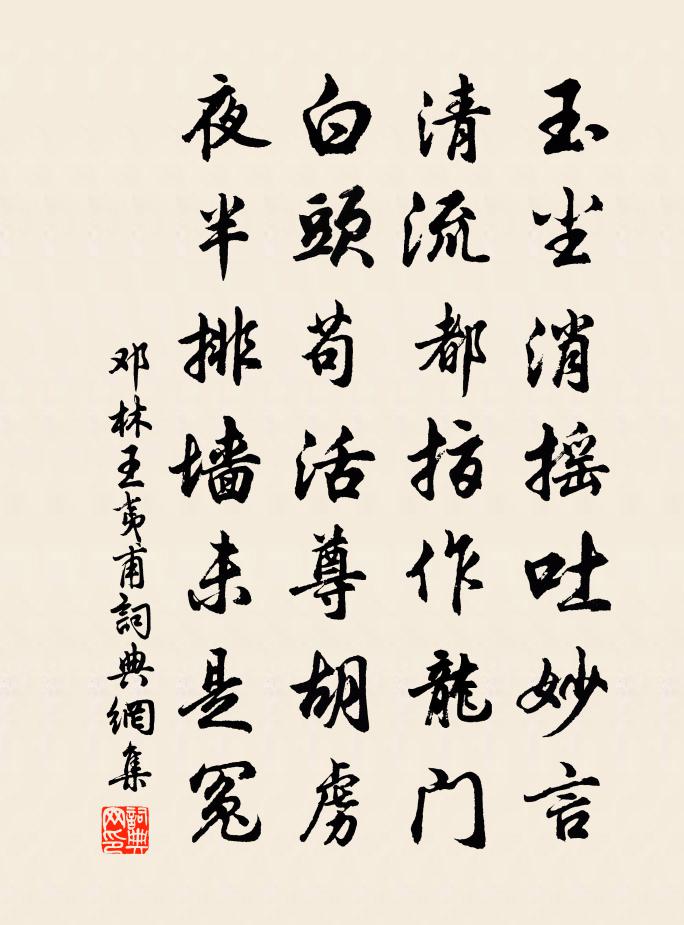 玉尘消摇吐妙言
清流都指作龍门
白頭苟活尊胡虏
夜半排墙未是冤
邓林王夷甫詞典網集
詞典网印